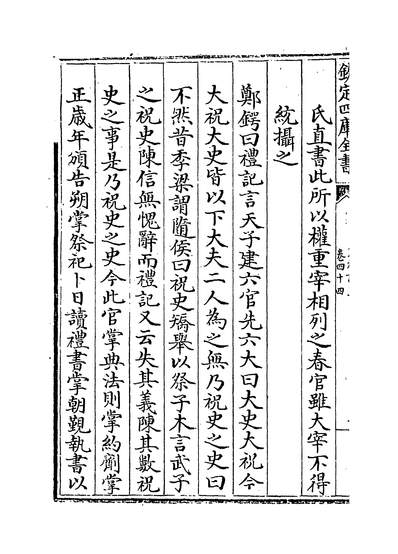 欽定四庫全書
卷四十四
氏直書此所以權重宰相列之春官雖大宰不得
統攝之
鄭鍔曰禮記言天子建六官先六大曰大史大祝今
大祝大史皆以下大夫二人為之無乃祝史之史曰
不然昔季梁謂隨侯曰祝史矯舉以祭子木言武子
之祝史陳信無愧辭而禮記又云失其義陳其數祝
史之事是乃祝史之史今此官掌典法則掌約劑掌
正歳年頒告朔掌祭祀卜日讀禮書掌朝覲執書以